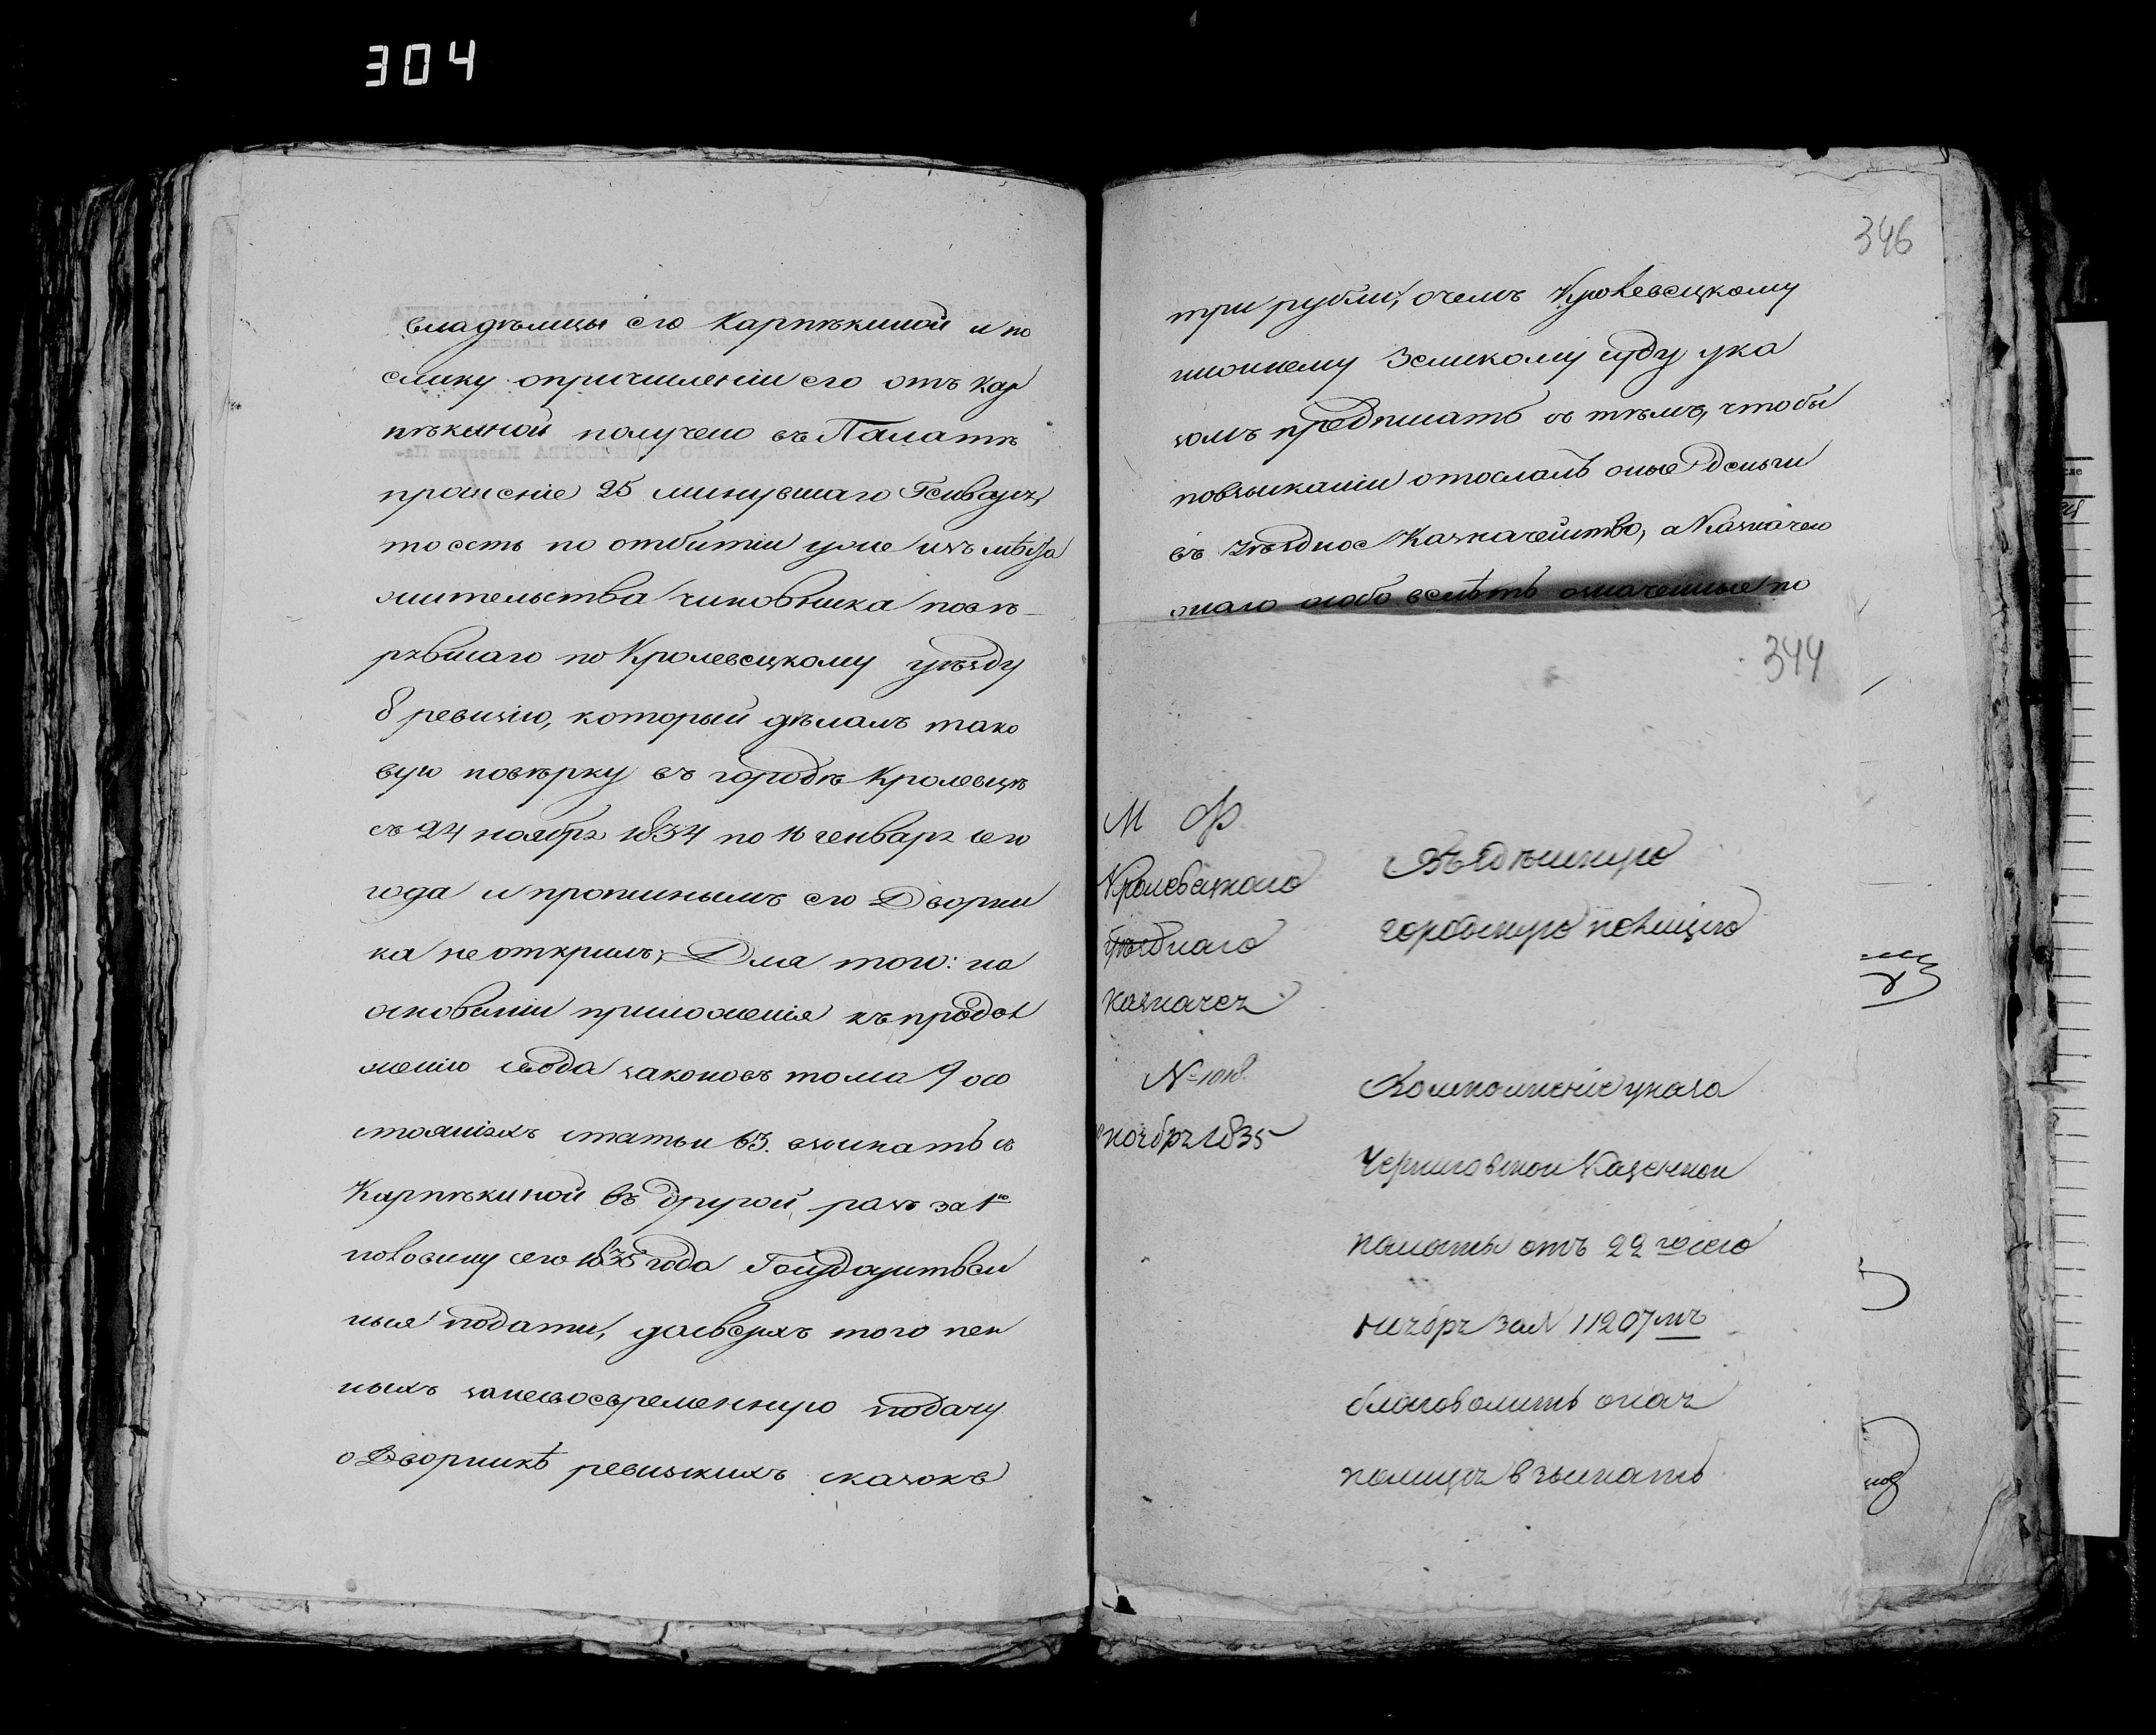 304
владѣлицы его Карпѣкиной и по
елику опричислении его отъ Кар
пѣкиной получено въ Палатѣ
прошеніе 25 минувшаго Генваря,
то есть по отбытіи уже изъ мѣста
жительства чиновника повѣ-
рявшаго по Кролевецкому уѣзду
8 ревизію, который дѣлалъ тако
вую повѣрку въ городѣ Кролевцѣ
съ 24 ноября 1834 по 16 генваря сего
года и прописнымъ его Дворни
ка не открылъ; Для того: на
основаніи приложенія къ продол
женію свода законовъ тома 9 осо
стояніяхъ статьи 63. взыскать съ
Карпѣкиной въ другой разъ за 1ю
половину сего 1835 года Государствен
ныя подати, да сверхъ того пен
ныхъ занесвоевременную подачу
о Дворникѣ ревизскихъ сказокъ
346
три рубли, очемъ Кролевецкому
Земскому суду ука
зомъ предписать съ тѣмъ, чтобы
повзысканіи отослалъ оные деньги
въ уѣздное Казначейство, а Казначею
онаго особо велѣть означенные по
344
М Ф
Кролевецкаго
уѣзднаго
казначея
№ 1018
ноября 1835
Въ здѣшнюю
городскую полицію
Восполненіе указа
Черниговской Казенной
палаты отъ 22 го сего
ноября за № 11207мъ
благоволитъ оная
полиція взыскать